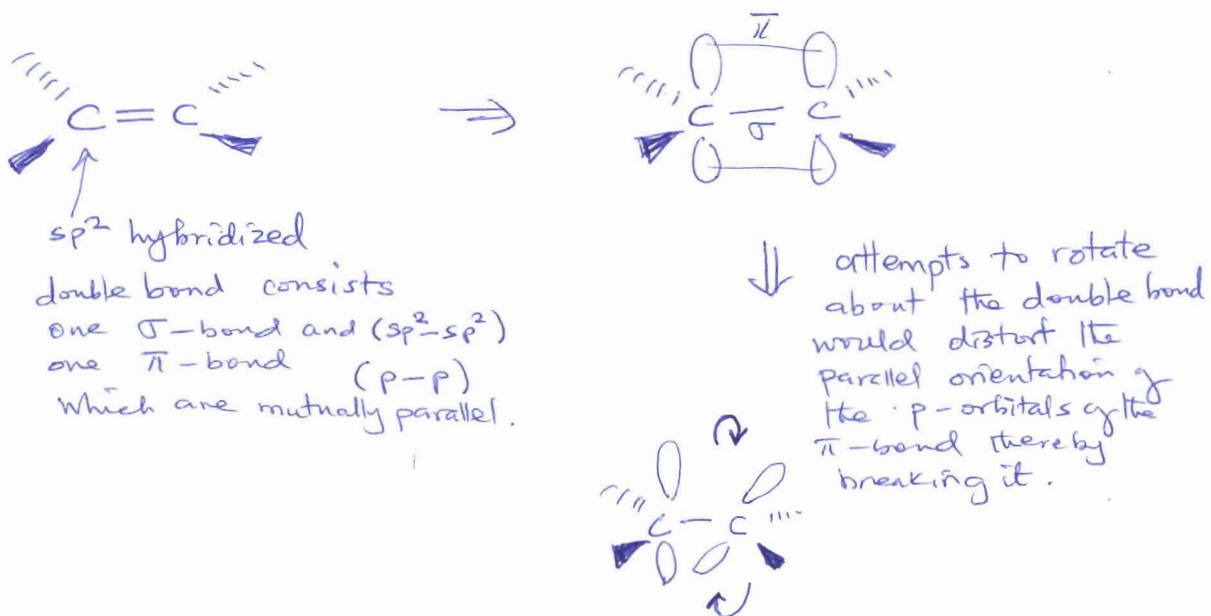 C = C
⇒
π
C — C
σ
sp² hybridized
double bond consists
one σ-bond and (sp²-sp²)
one π-bond (p-p)
which are mutually parallel.
⇓
attempts to rotate
about the double bond
would distort the
parallel orientation of
the p-orbitals of the
π-bond thereby
breaking it.
C — C